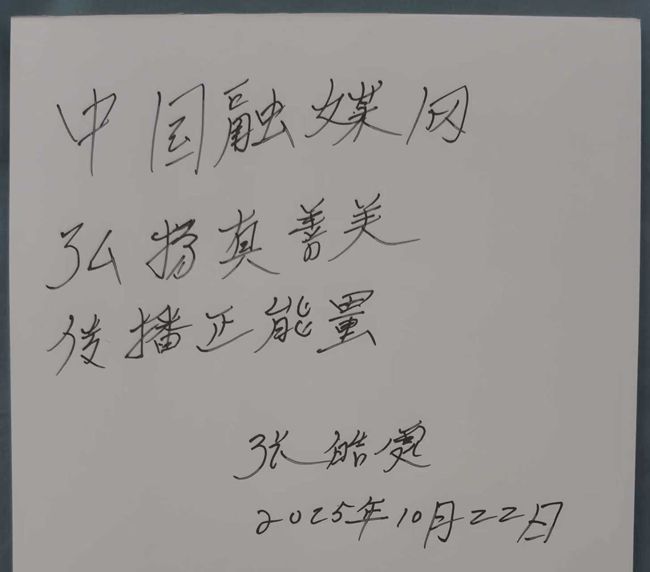 中国融媒网
弘扬真善美
传播正能量
张皓
2025年10月22日